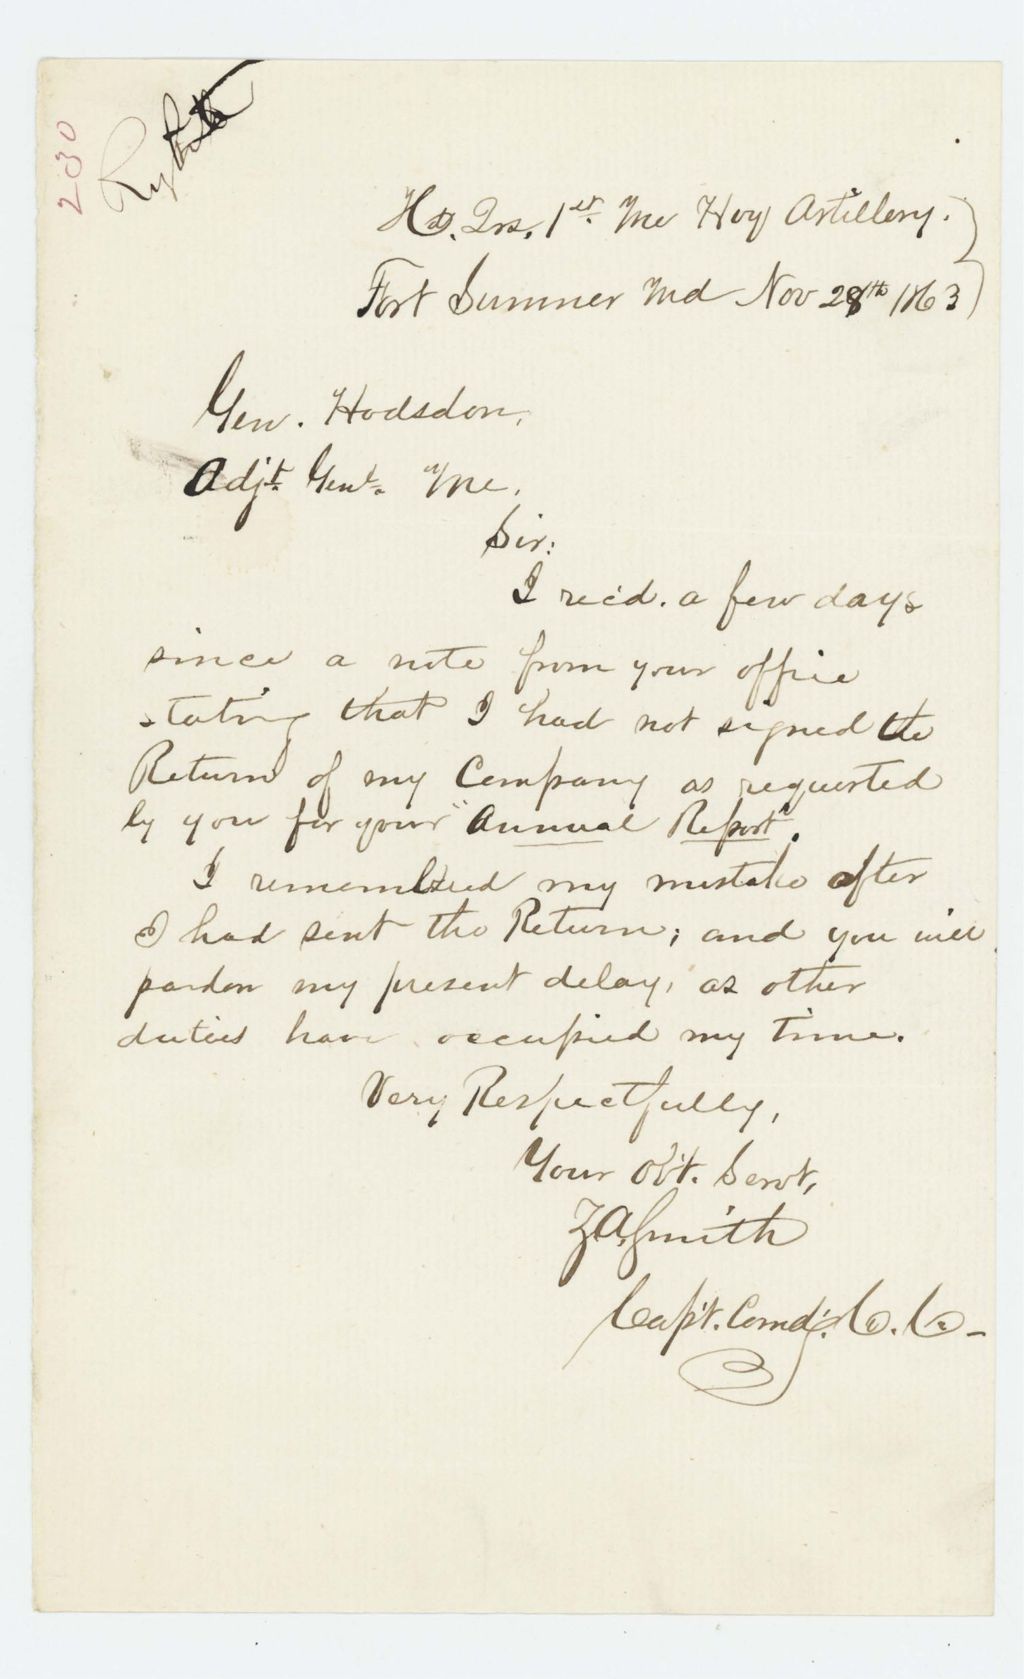 230
Hd. Qrs. 1st. Me Hvy Artillery.
Fort Sumner Md Nov 28th 1863
Gen. Hodsdon,
Adjt. Genl. Me.
Sir:
I rec'd. a few days
since a note from your office
stating that I had not signed the
Return of my Company as requested
by you for your "Annual Report".
I remembered my mistake after
I had sent the Return; and you will
pardon my present delay, as other
duties have occupied my time.
Very Respectfully,
Your Ob't. Servt,
Z.A. Smith
Capt. Comd'g. Co. C. -